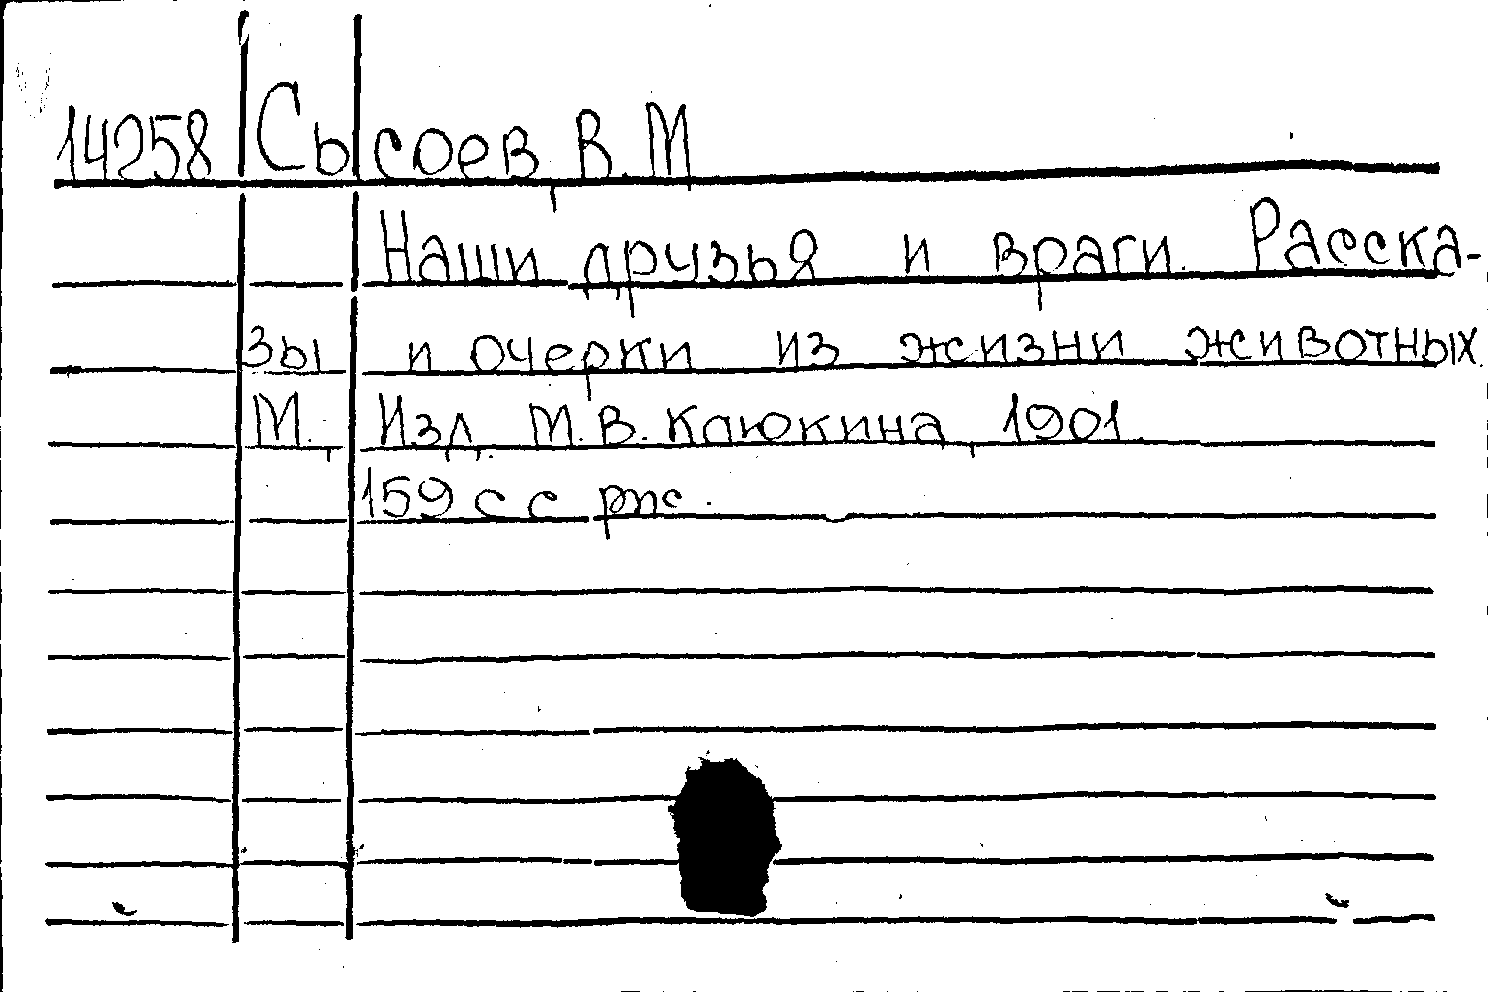 14258 Сысоев, В. М
Наши друзья и враги. Расска-
зы и очерки из жизни животных.
М., Изд. М.В. Клюкина, 1901.
159 с с рис.